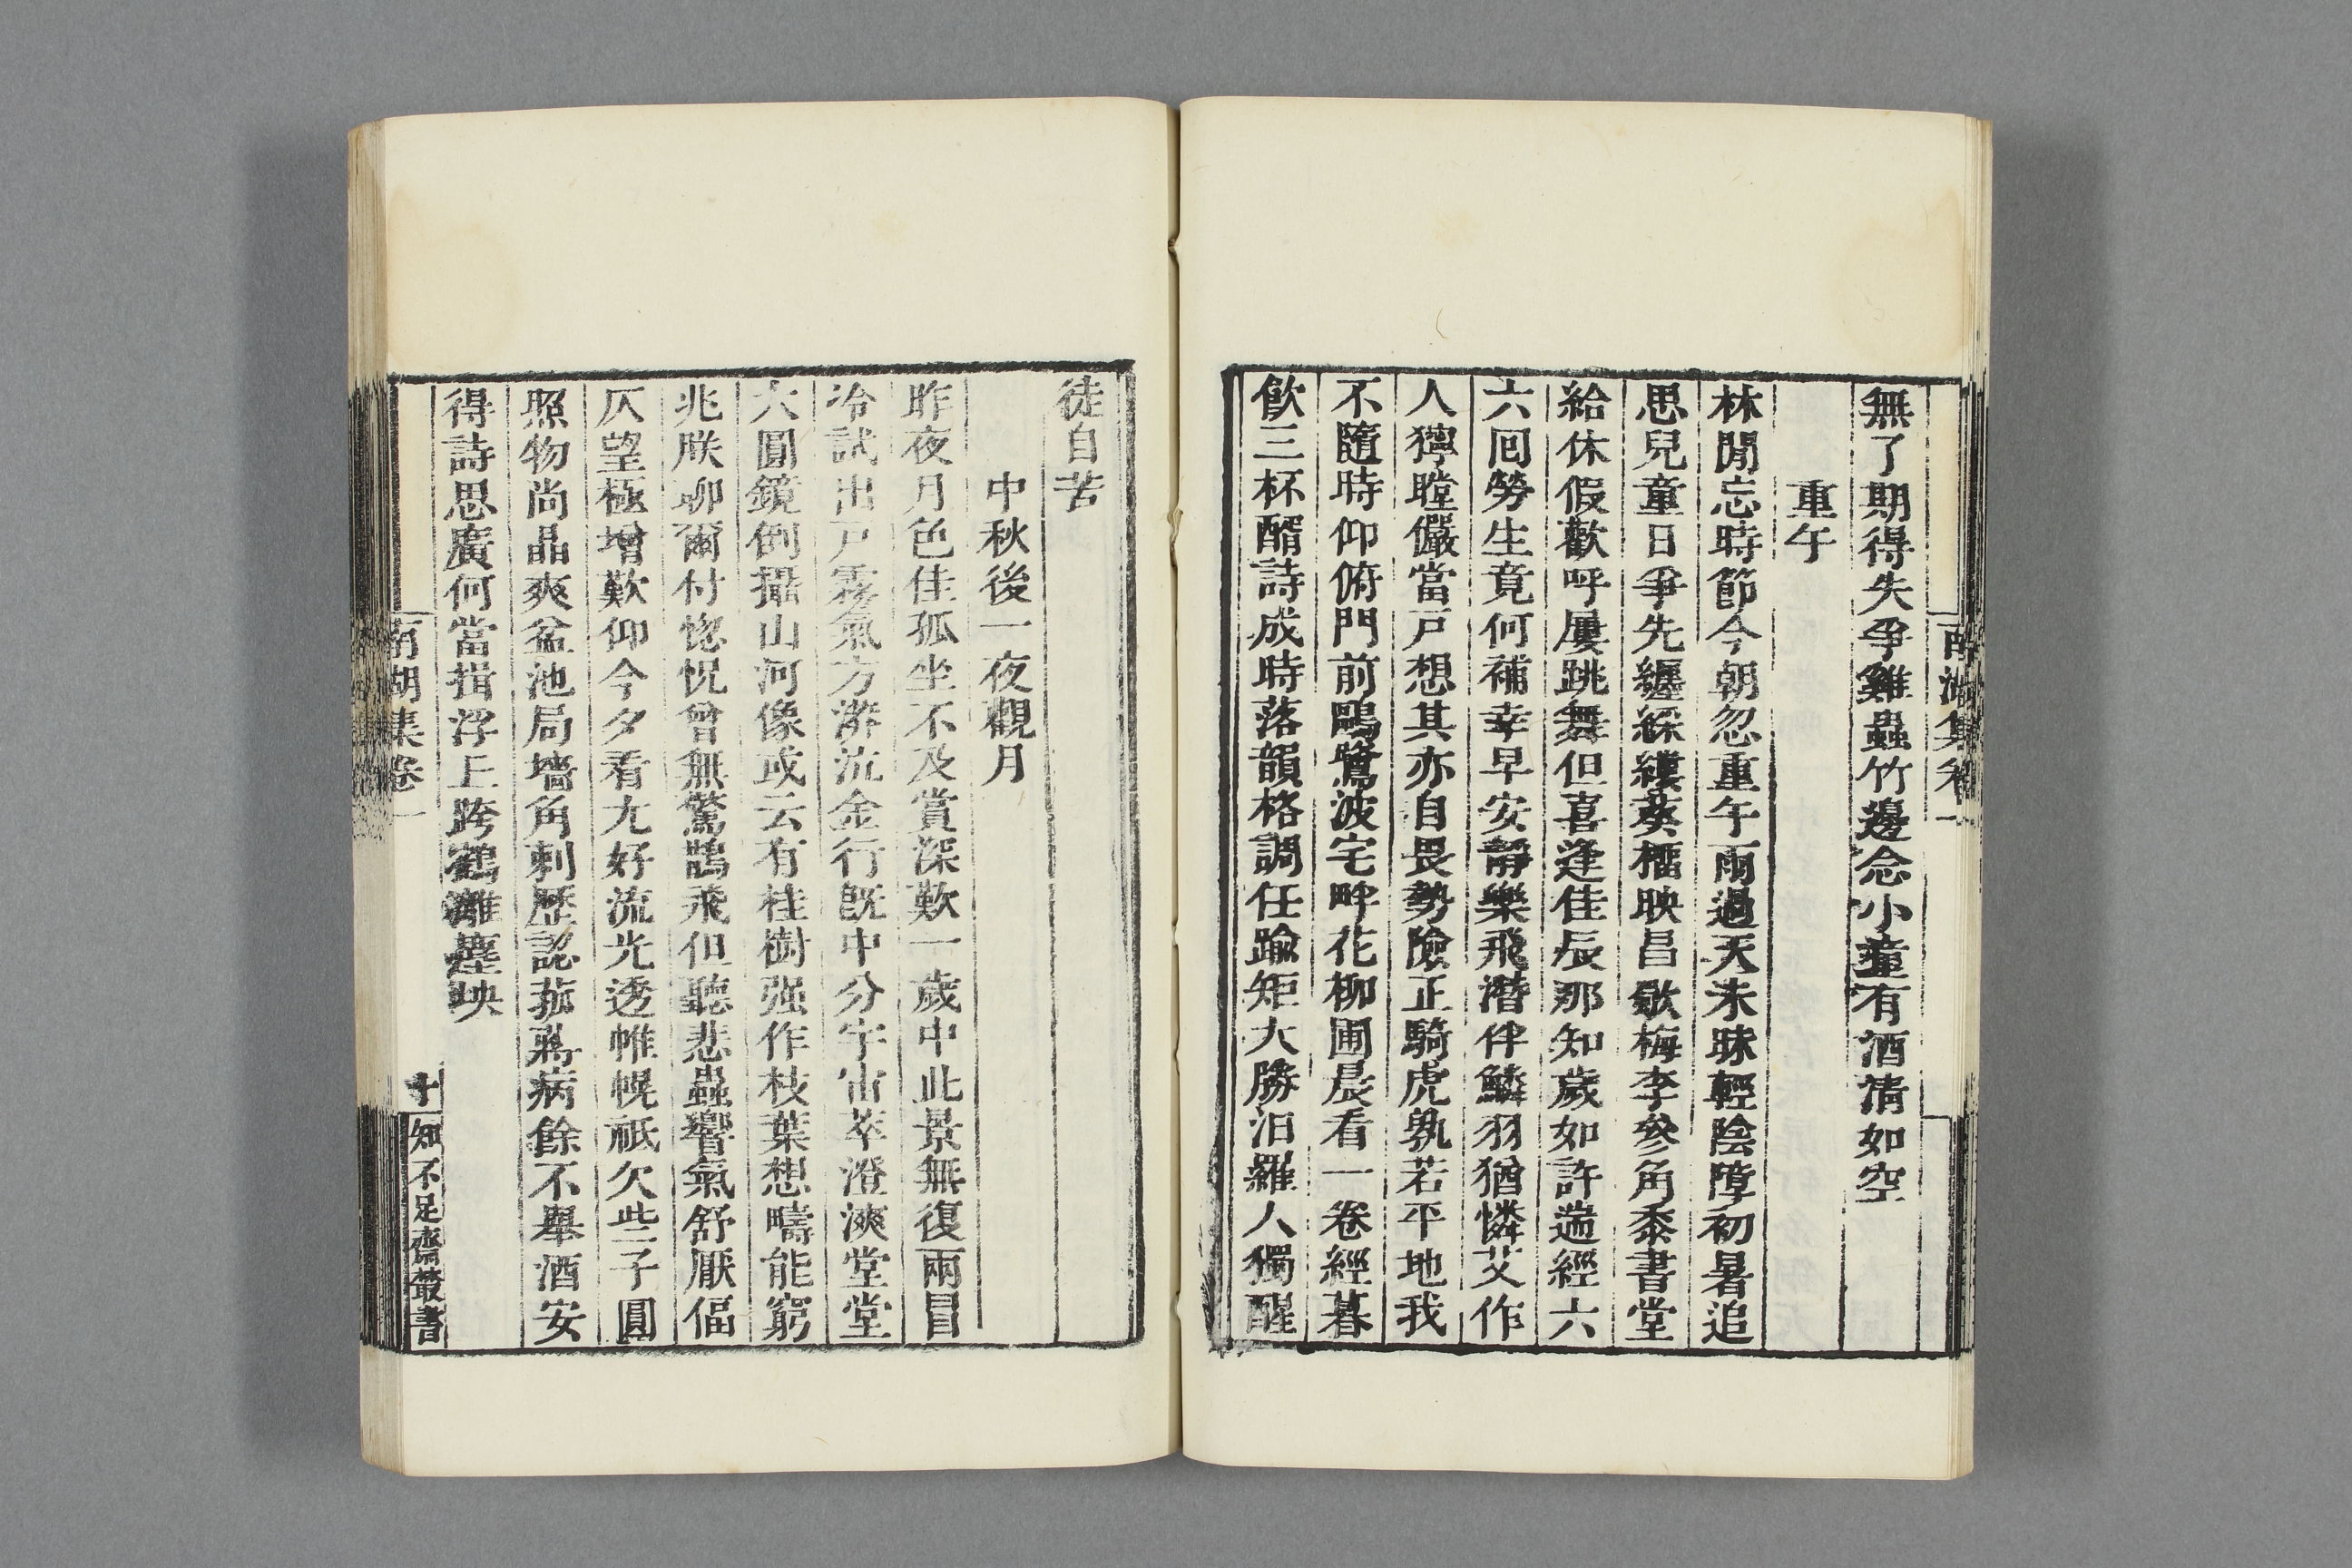 南湖集卷一
無了期得失爭雞蟲竹邊念小童有酒清如空
重午
林閒忘時節今朝忽重午雨過天未昧輕陰障初暑追
思兒童日爭先纏綵縷葵榴映昌歜梅李參角黍書堂
給休假歡呼屢跳舞但喜逢佳辰那知歲如許耑經六
六回勞生竟何補幸早安靜樂飛潛伴鱗羽猶憐艾作
人獰瞠儼當戸想其亦自畏勢險正騎虎孰若平地我
不隨時仰俯門前鷗鷺波宅畔花柳圃晨看一卷經暮
飲三杯醑詩成時落韻格調任踰矩大勝汨羅人獨醒
徒自苦
中秋後一夜觀月
昨夜月色佳孤坐不及賞深歎一歲中此景無復兩目
冷試出戸霧氣方漭沆金行旣中分宇宙萃澄漪堂堂
大圓鏡倒攝山河像或云有桂樹强作枝葉想疇能窮
兆朕聊爾付惚怳曾無驚鵲飛但聽悲蟲響氣舒厭偪
仄望極增歎仰今夕看尤好流光透帷幌祇欠些子圓
照物尚晶爽盆池局墻角刺歷認菰蔣病餘不舉酒安
得詩思廣何當揖浮上跨鶴離塵坱
南湖集卷一
十
知不足齋叢書